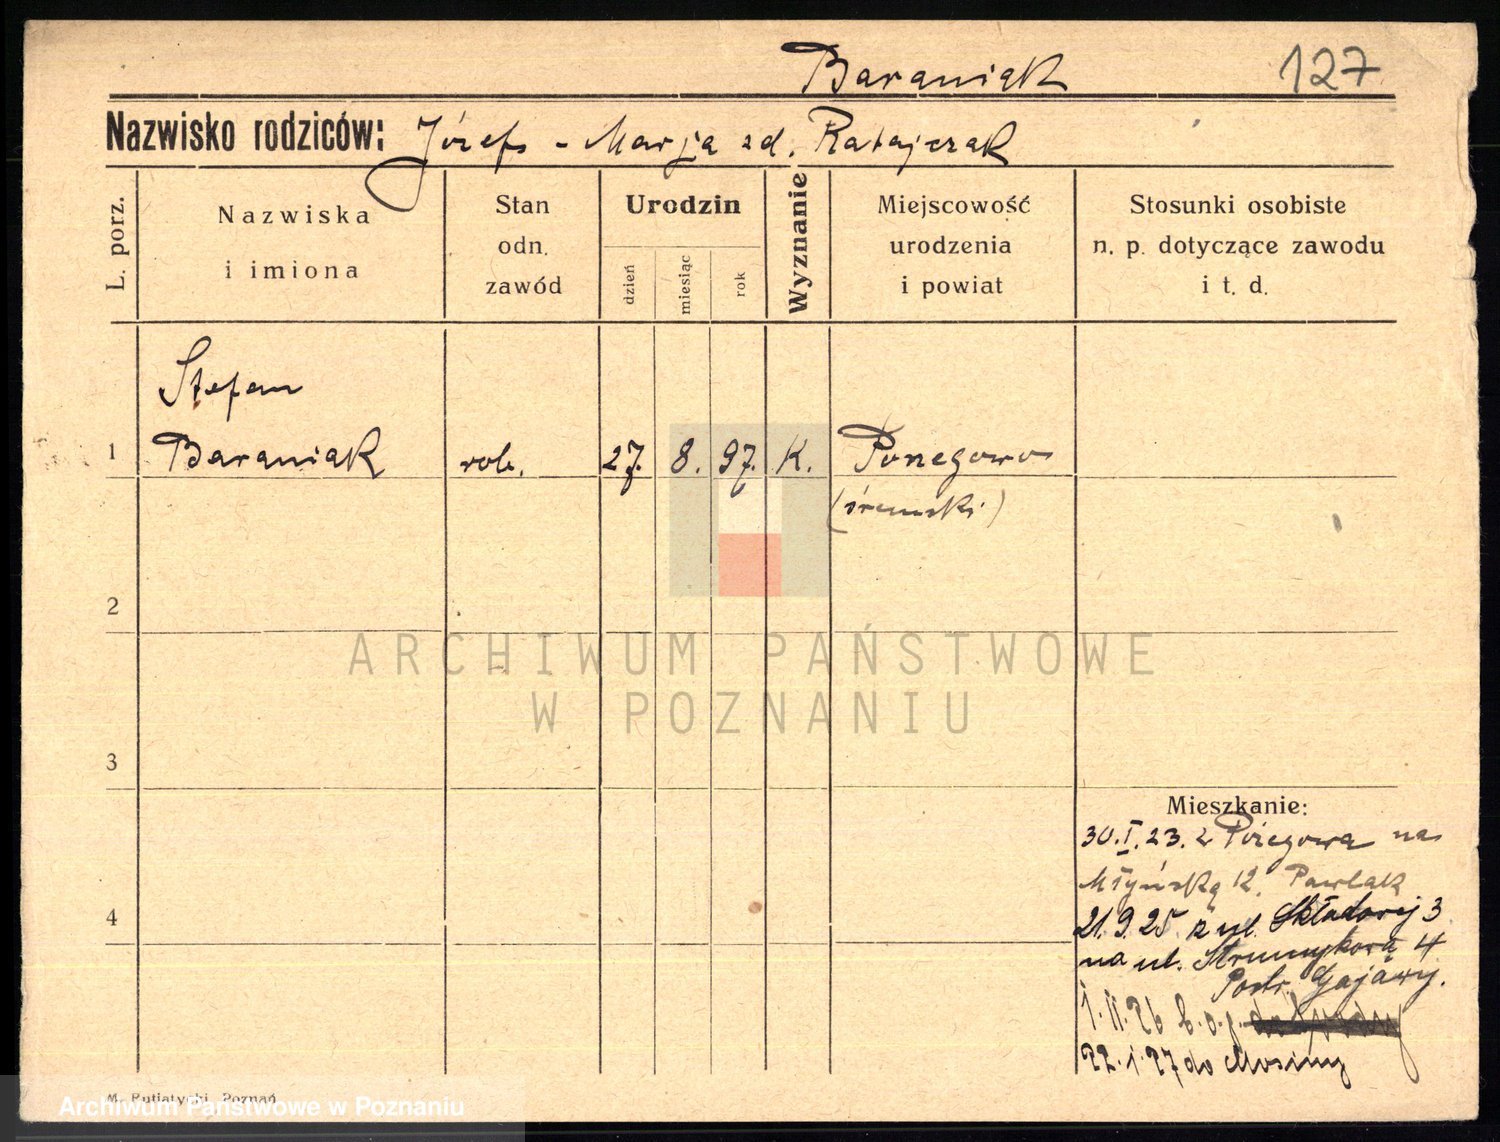 Baraniak 127
Nazwisko rodziców: Józef - Marja zd. Ratajczak
L. porz.
Nazwiska
i imiona
Stan
odn.
zawód
Urodzin
dzień
miesiąc
rok
Wyznanie
Miejscowość
urodzenia
i powiat
Stosunki osobiste
n. p. dotyczące zawodu
i t. d.
Stefan
1 Baraniak rob. 27. 8. 97. K. Ponegowo
(śremski)
2
ARCHIWUM PAŃSTWOWE
W POZNANIU
3
Mieszkanie:
30.I.23. z Pożegowa na
Młyńską 12. Pawlak
4
21.9.25. z ul. Składowej 3
na ul. Strumykową 4
Postr. Gajawy.
22.1.27 do Mosiny
M. Putiatycki, Poznań
Archiwum Państwowe w Poznaniu